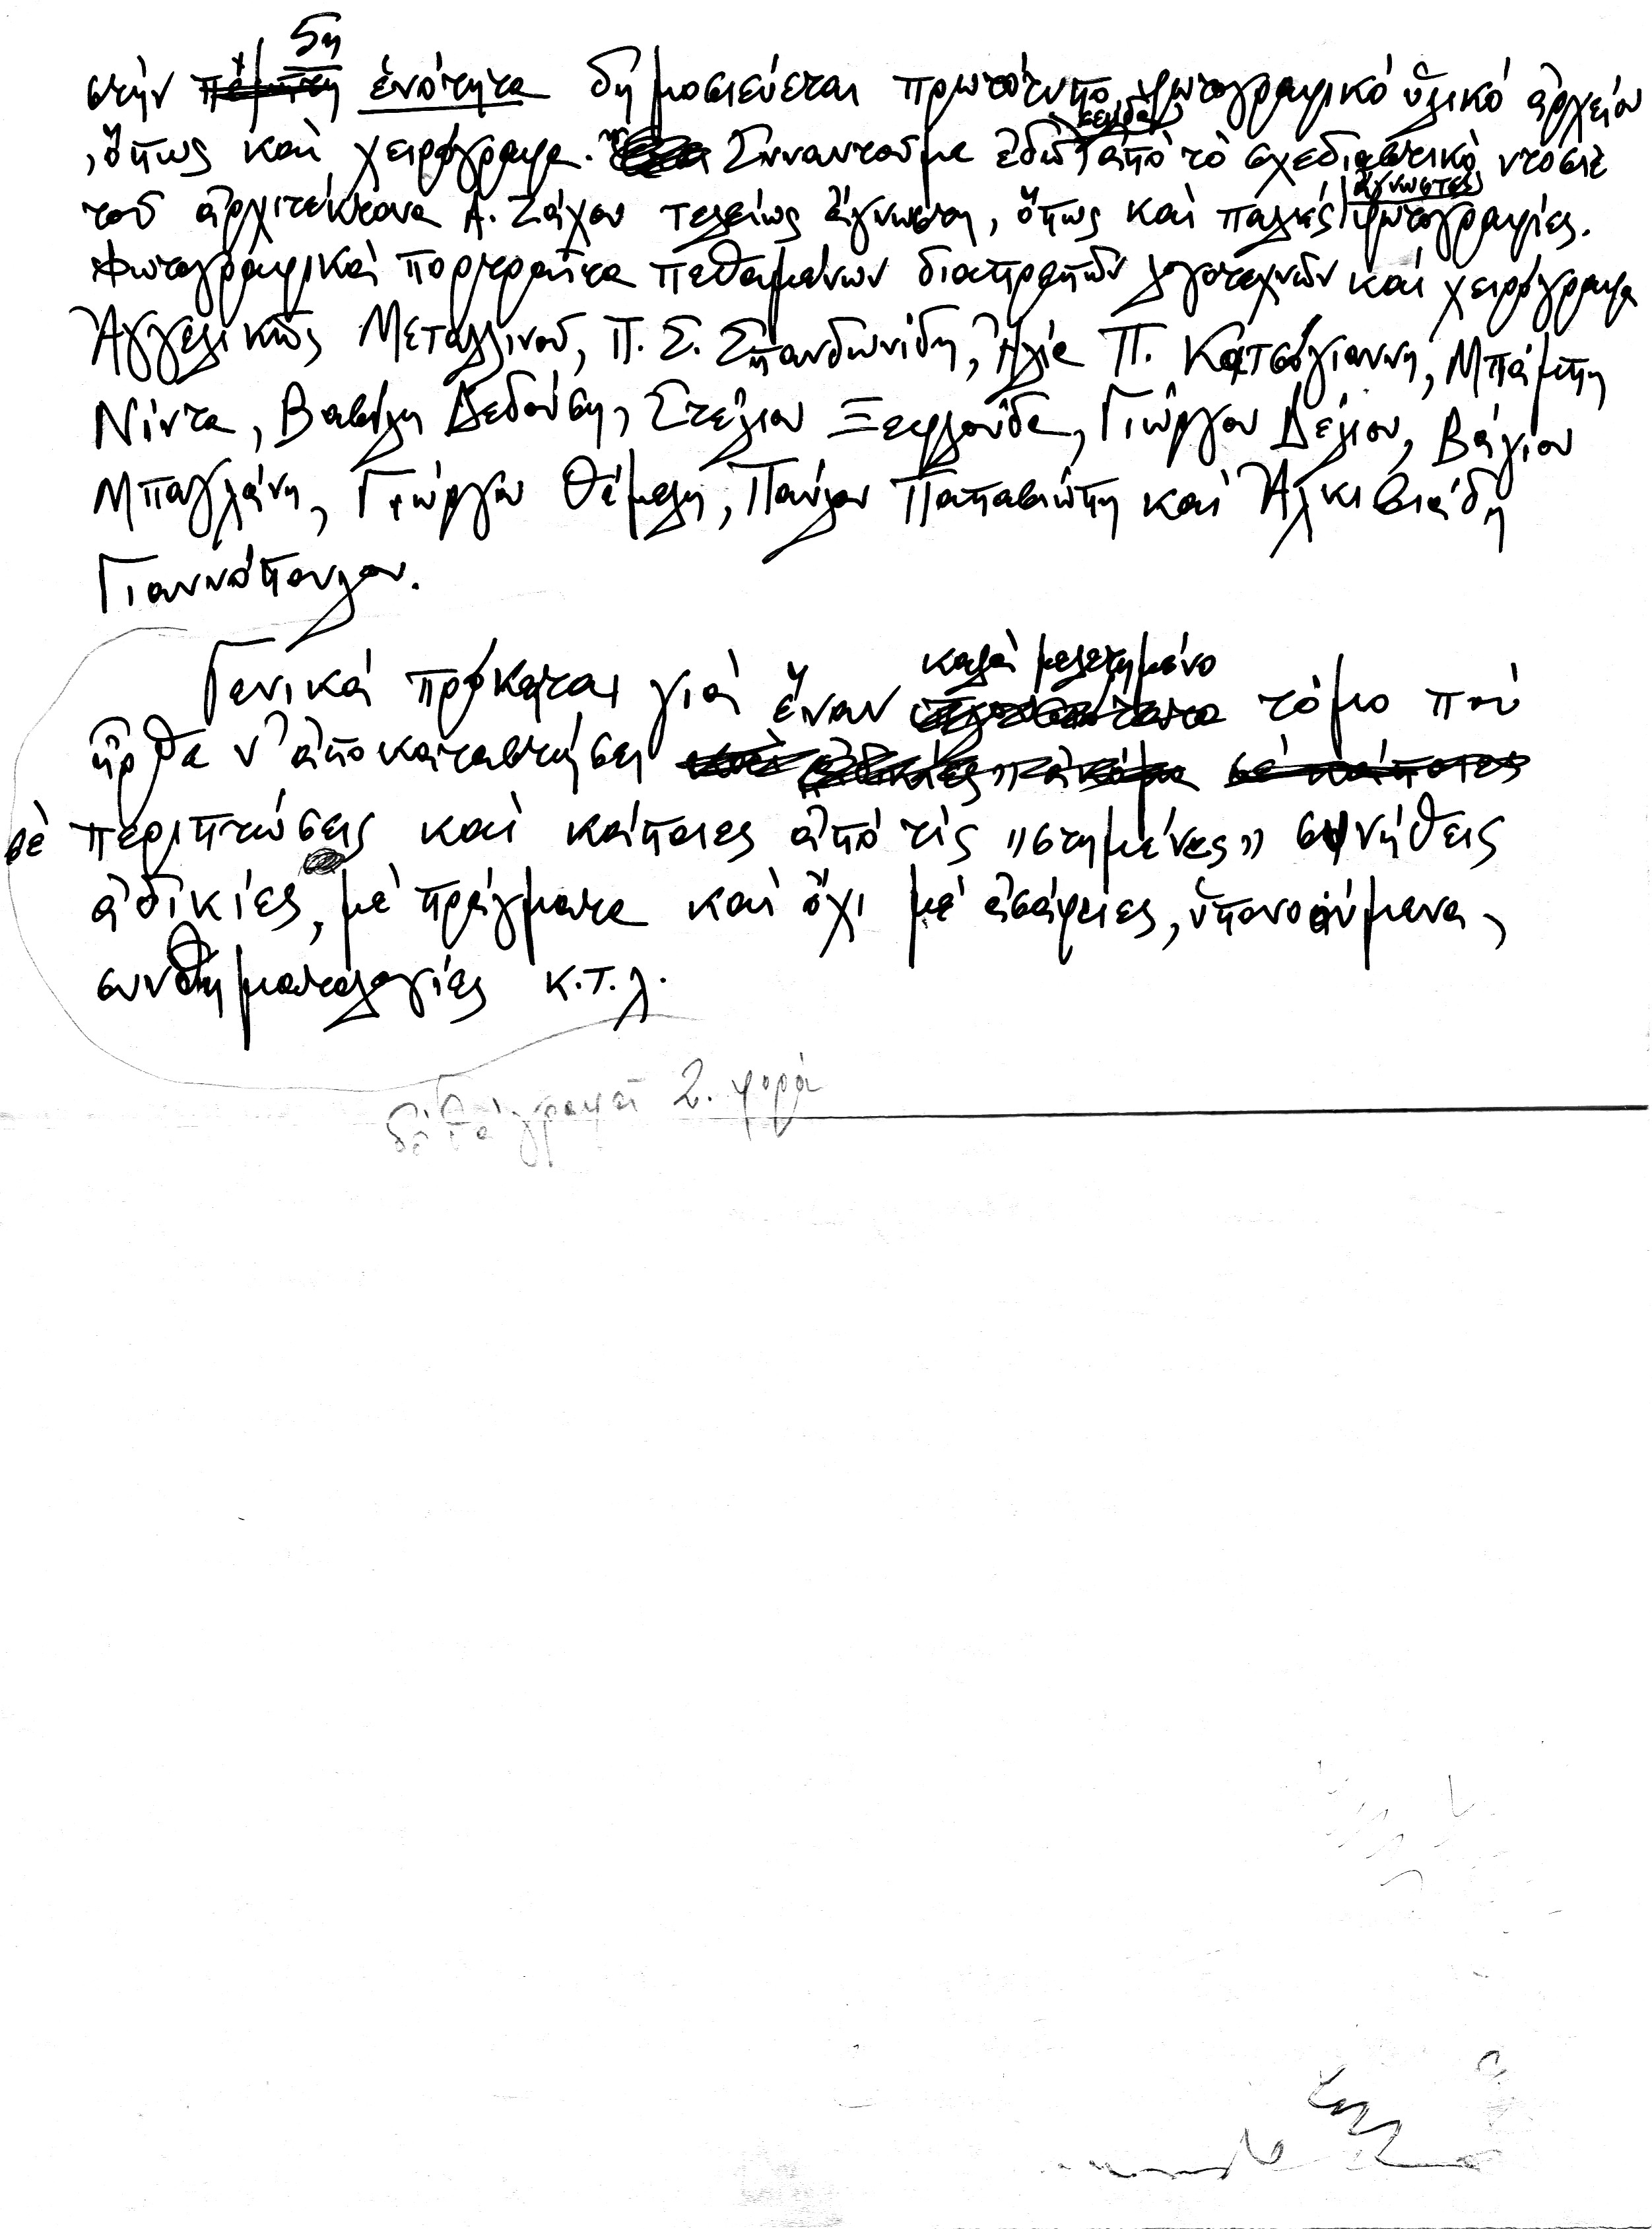 στήν πέμπτη 5η ἑνότητα δημοσιεύεται πρωτότυπο φωτογραφικό ὑλικό ἀρχείου
, ὅπως καί χειρόγραφα. Συναντοῦμε ἐδῶ σχέδια ἀπό τό σχεδιαστικό ντοσιέ
τοῦ ἀρχιτέκτονα Α. Ζάχου τελείως ἄγνωστη, ὅπως καί παλιές ἄγνωστες φωτογραφίες.
Φωτογραφικά πορτραῖτα πεθαμένων διαπρεπῶν λογοτεχνῶν καί χειρόγραφα
Ἀγγελικῆς Μεταλλινοῦ, Π. Σ. Σπανδωνίδη, Ἠλία Π. Κατσόγιαννη, Μπάμπη
Νίντα, Βασίλη Δεδούση, Στέλιου Ξεφλούδα, Γιώργου Δέλιου, Βάγιου
Μπαγλάνη, Γιώργου Θέμελη, Παύλου Παπασιώπη καί Ἀλκιβιάδη
Γιαννόπουλου.
Γενικά πρόκειται γιά ἕναν καλά μελετημένο τόμο πού
ἦρθε ν' ἀποκαταστήσει σέ κάποιες
σέ περιπτώσεις καί κάποιες ἀπό τίς "στημένες" συνήθεις
ἀδικίες, μέ πράγματα καί ὄχι μέ ἀσάφειες, ὑπονοούμενα,
συνθηματολογίες κ.τ.λ.
2. φορά